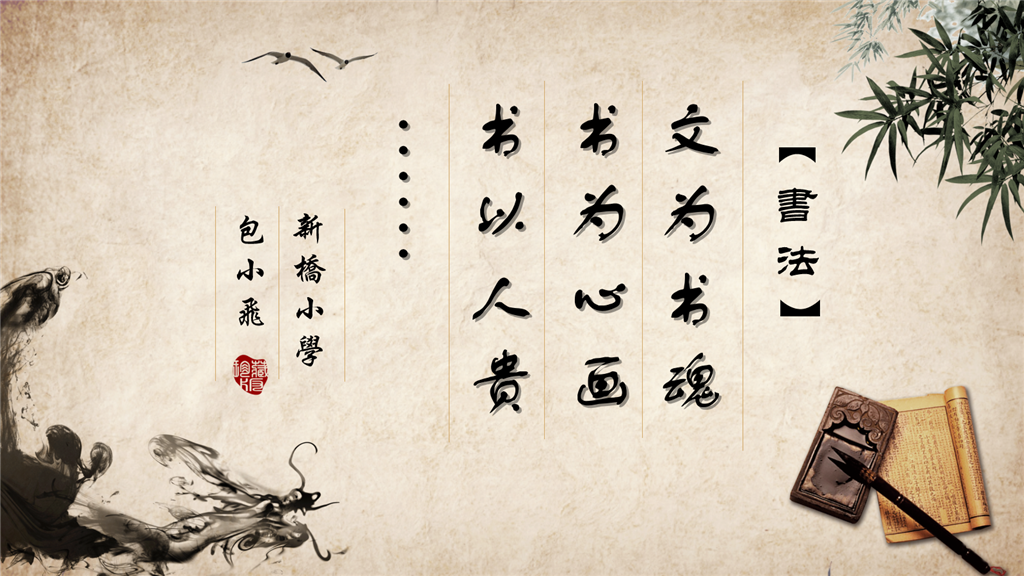 【書法】
文为书魂
书为心画
书以人贵
······
新橋小學
包小飛